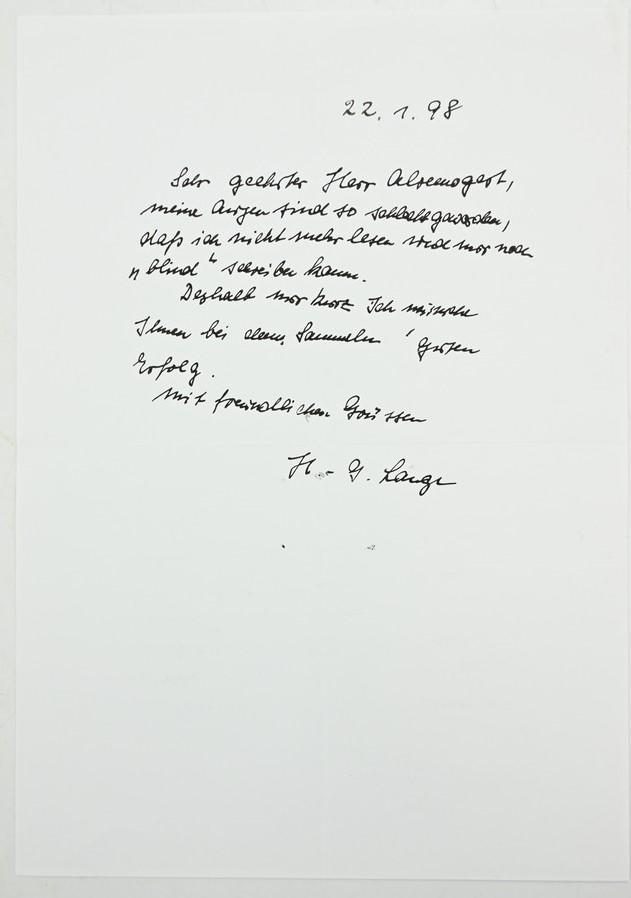 22. 1. 98
Sehr geehrter Herr
meine Augen sind so schlecht geworden,
daß ich nicht mehr lesen und nur noch
„blind“ schreiben kann.
Deshalb nur kurz Ich wünsche
Ihnen bei dem Sammeln guten
Erfolg.
Mit freundlichen Grüssen
H.-G. Lange